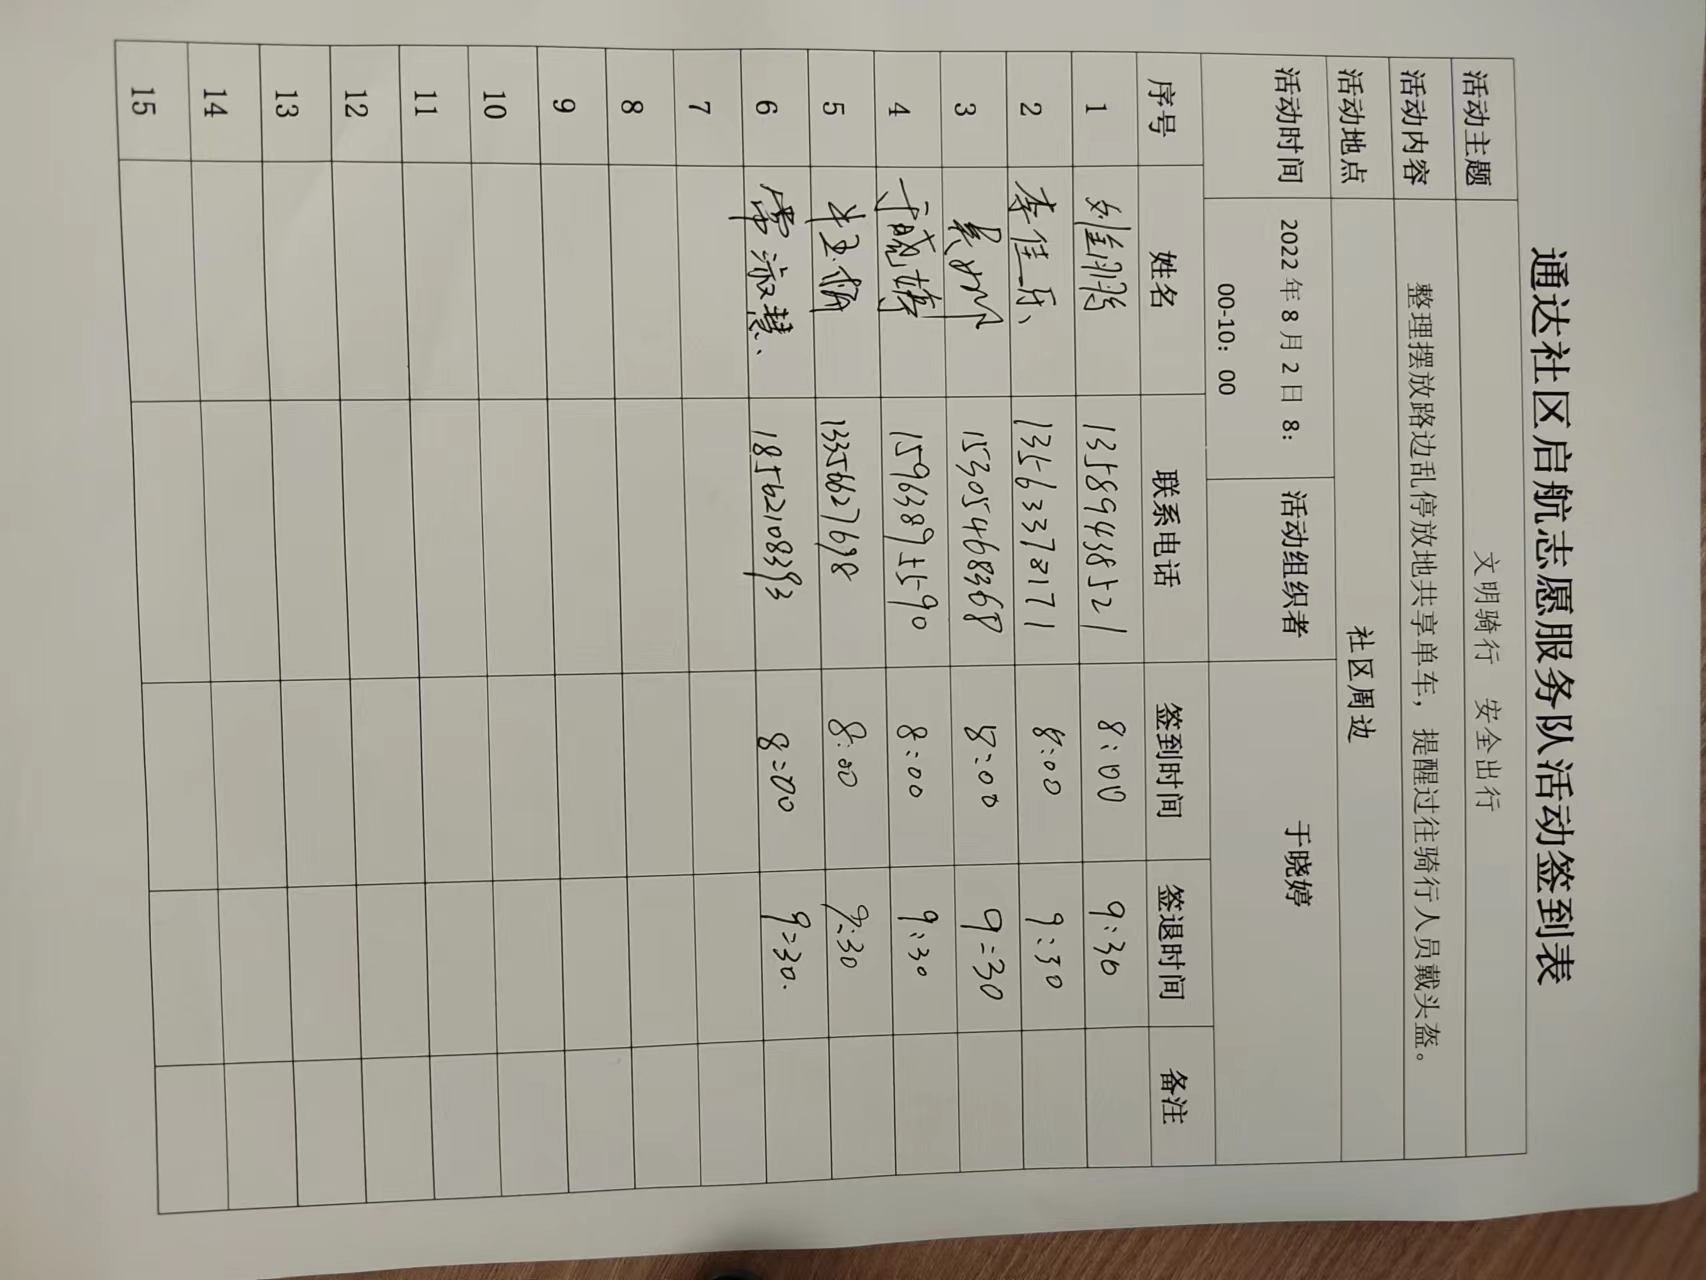 通达社区启航志愿服务队活动签到表
活动主题 文明骑行 安全出行
活动内容 整理摆放路边乱停放地共享单车，提醒过往骑行人员戴头盔。
活动地点 社区周边
活动时间 2022 年 8 月 2 日 8：
00-10：00 活动组织者 于晓婷
序号 姓名 联系电话 签到时间 签退时间 备注
1 13589438521 8:00 9:30
2 李佳乐 13563378171 8:00 9:30
3 15305468368 8:00 9:30
4 于晓婷 15963895590 8:00 9:30
5 13356627698 8:00 9:30
6 常淑慧 18562108393 8:00 9:30.
7
8
9
10
11
12
13
14
15